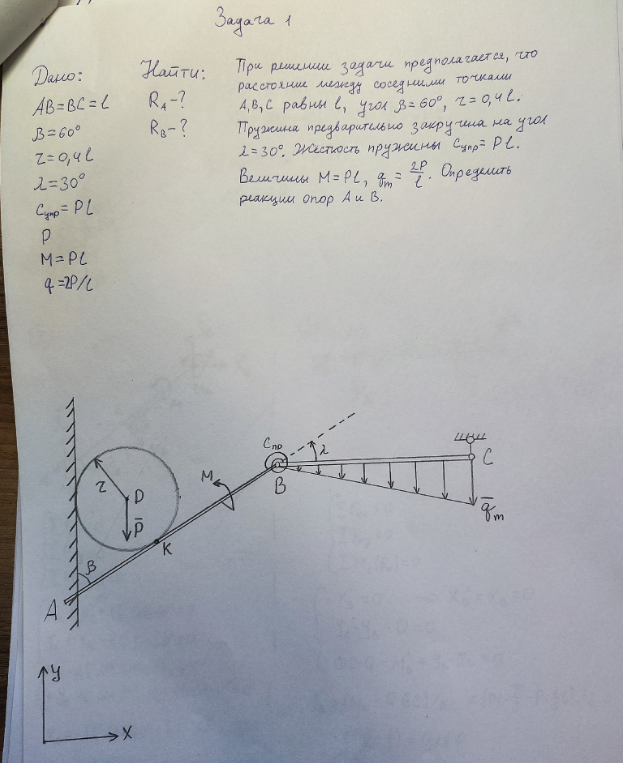 Задача 1
Дано:
AB=BC=l
β=60°
r=0,4l
λ=30°
Cупр=Pl
P
M=Pl
q=2P/l
Найти:
RA-?
RB-?
При решении задачи предполагается, что
расстояние между соседними точками
A,B,C равны l, угол β=60°, r=0,4l.
Пружина предварительно закручена на угол
λ=30°. Жёсткость пружины Cупр=Pl.
Величины M=Pl, qm = 2P/l. Определить
реакции опор A и B.
Cпр
λ
C
M
B
r
D
P̄
q̄m
K
β
A
y
x